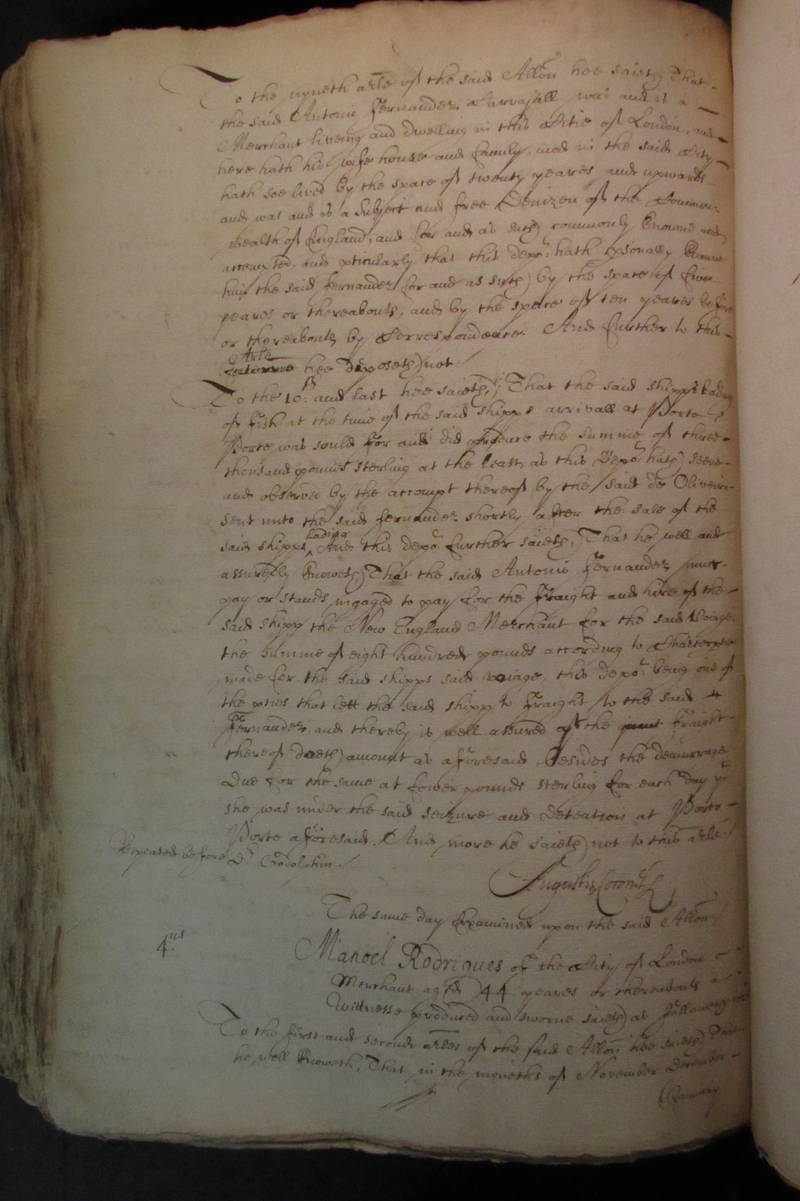 To the nyneth arle of the said Allon hee saieth That
the said Antonio Fernandez Carvajall was and is a
Merchant liveing and dwelling in this Citie of London, and
here hath his wife house and family, and in the said City
hath soe lived by the space of twenty yeares and upwards
and was and is a Subject and free Denizen of the Common
wealth of England, and for and as such commonly knowne and
accompted, and pticularly that this depot hath psonally knowne
him the said Fernandez (for and as such) by the space of five
yeares or thereabouts, and by the space of ten yeares before
or thereabouts by Correspondence. And further to this
Arle hee deposeth not
To the 10th and last hee saieth, That the said shipps lading
of fish at the time of the said shipps arrivall at Porto
Porte was sould for and did produce the summe of three
thousand pounds sterling at the least, as this depot hath seene
and observed by the accompt thereof by the said de Oliveira
sent unto the said Fernandez shortly after the sale of the
said shipps lading And this depot further saieth, That he well and
assuredly knoweth That the said Antonio Fernandez must
pay or stands ingaged to pay for the fraight and hire of the
said shipp the New England Merchant for the said Voiage
the summe of eight hundred pounds according to Charterpartie
made for the said shipps said voiage, this depot being one of
the pties that lett the said shipp to fraight to the said
Fernandez, and thereby is well assured of the fraight
thereof doeth amount as aforesaid Besides the demurrage
due for the same at fower pounds sterling for each day yt
she was under the said seizure and detention at Porto
Porte aforesaid. And more he saieth not to this arle
Repeated before Dr Godolphin.
Augustin Coronel
The same day Examined upon the said Allon
4us
Manoel Rodrigues of the City of London
Merchant aged 44 yeares or thereabouts a
Wittnesse produced and sworne saieth as followeth
To the first and second arles of the said Allon hee saieth That
he well knoweth, That in the moneths of November December